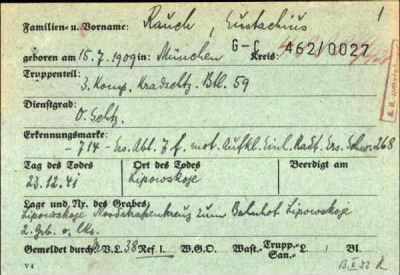 1
Familien- u. Vorname: Rauch, Eustachius
geboren am 15.7.1909 in München Kreis: G-C 462/0027
Truppenteil:
3. Komp. Kradschtz. Btl. 59
Dienstgrad:
O. Schtz.
Erkennungsmarke:
-714- Ers. Abt. 7 f. mot. Aufkl. Einh. Radf. Ers. Schw. 268
Tag des Todes Ort des Todes Beerdigt am
23.12.41 Lipowskoje
Lage und Nr. des Grabes:
Lipowskoje zum Bahnhof Lipowskoje
2. Grb. v. lks.
Gemeldet durch: V.L. 38 Ref 1. W.G.O. Wast.- Trupp.- San. L Bl.
V 4